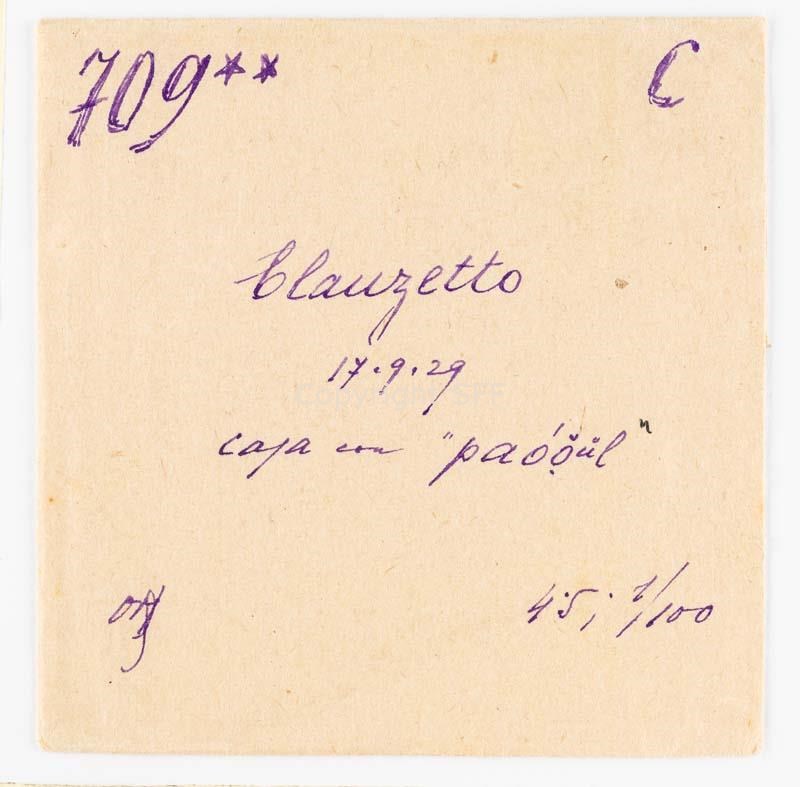 709** C
Clauzetto
17.9.29
Copyright SFF
casa con "paóo̤ül"
4.5; 1/100